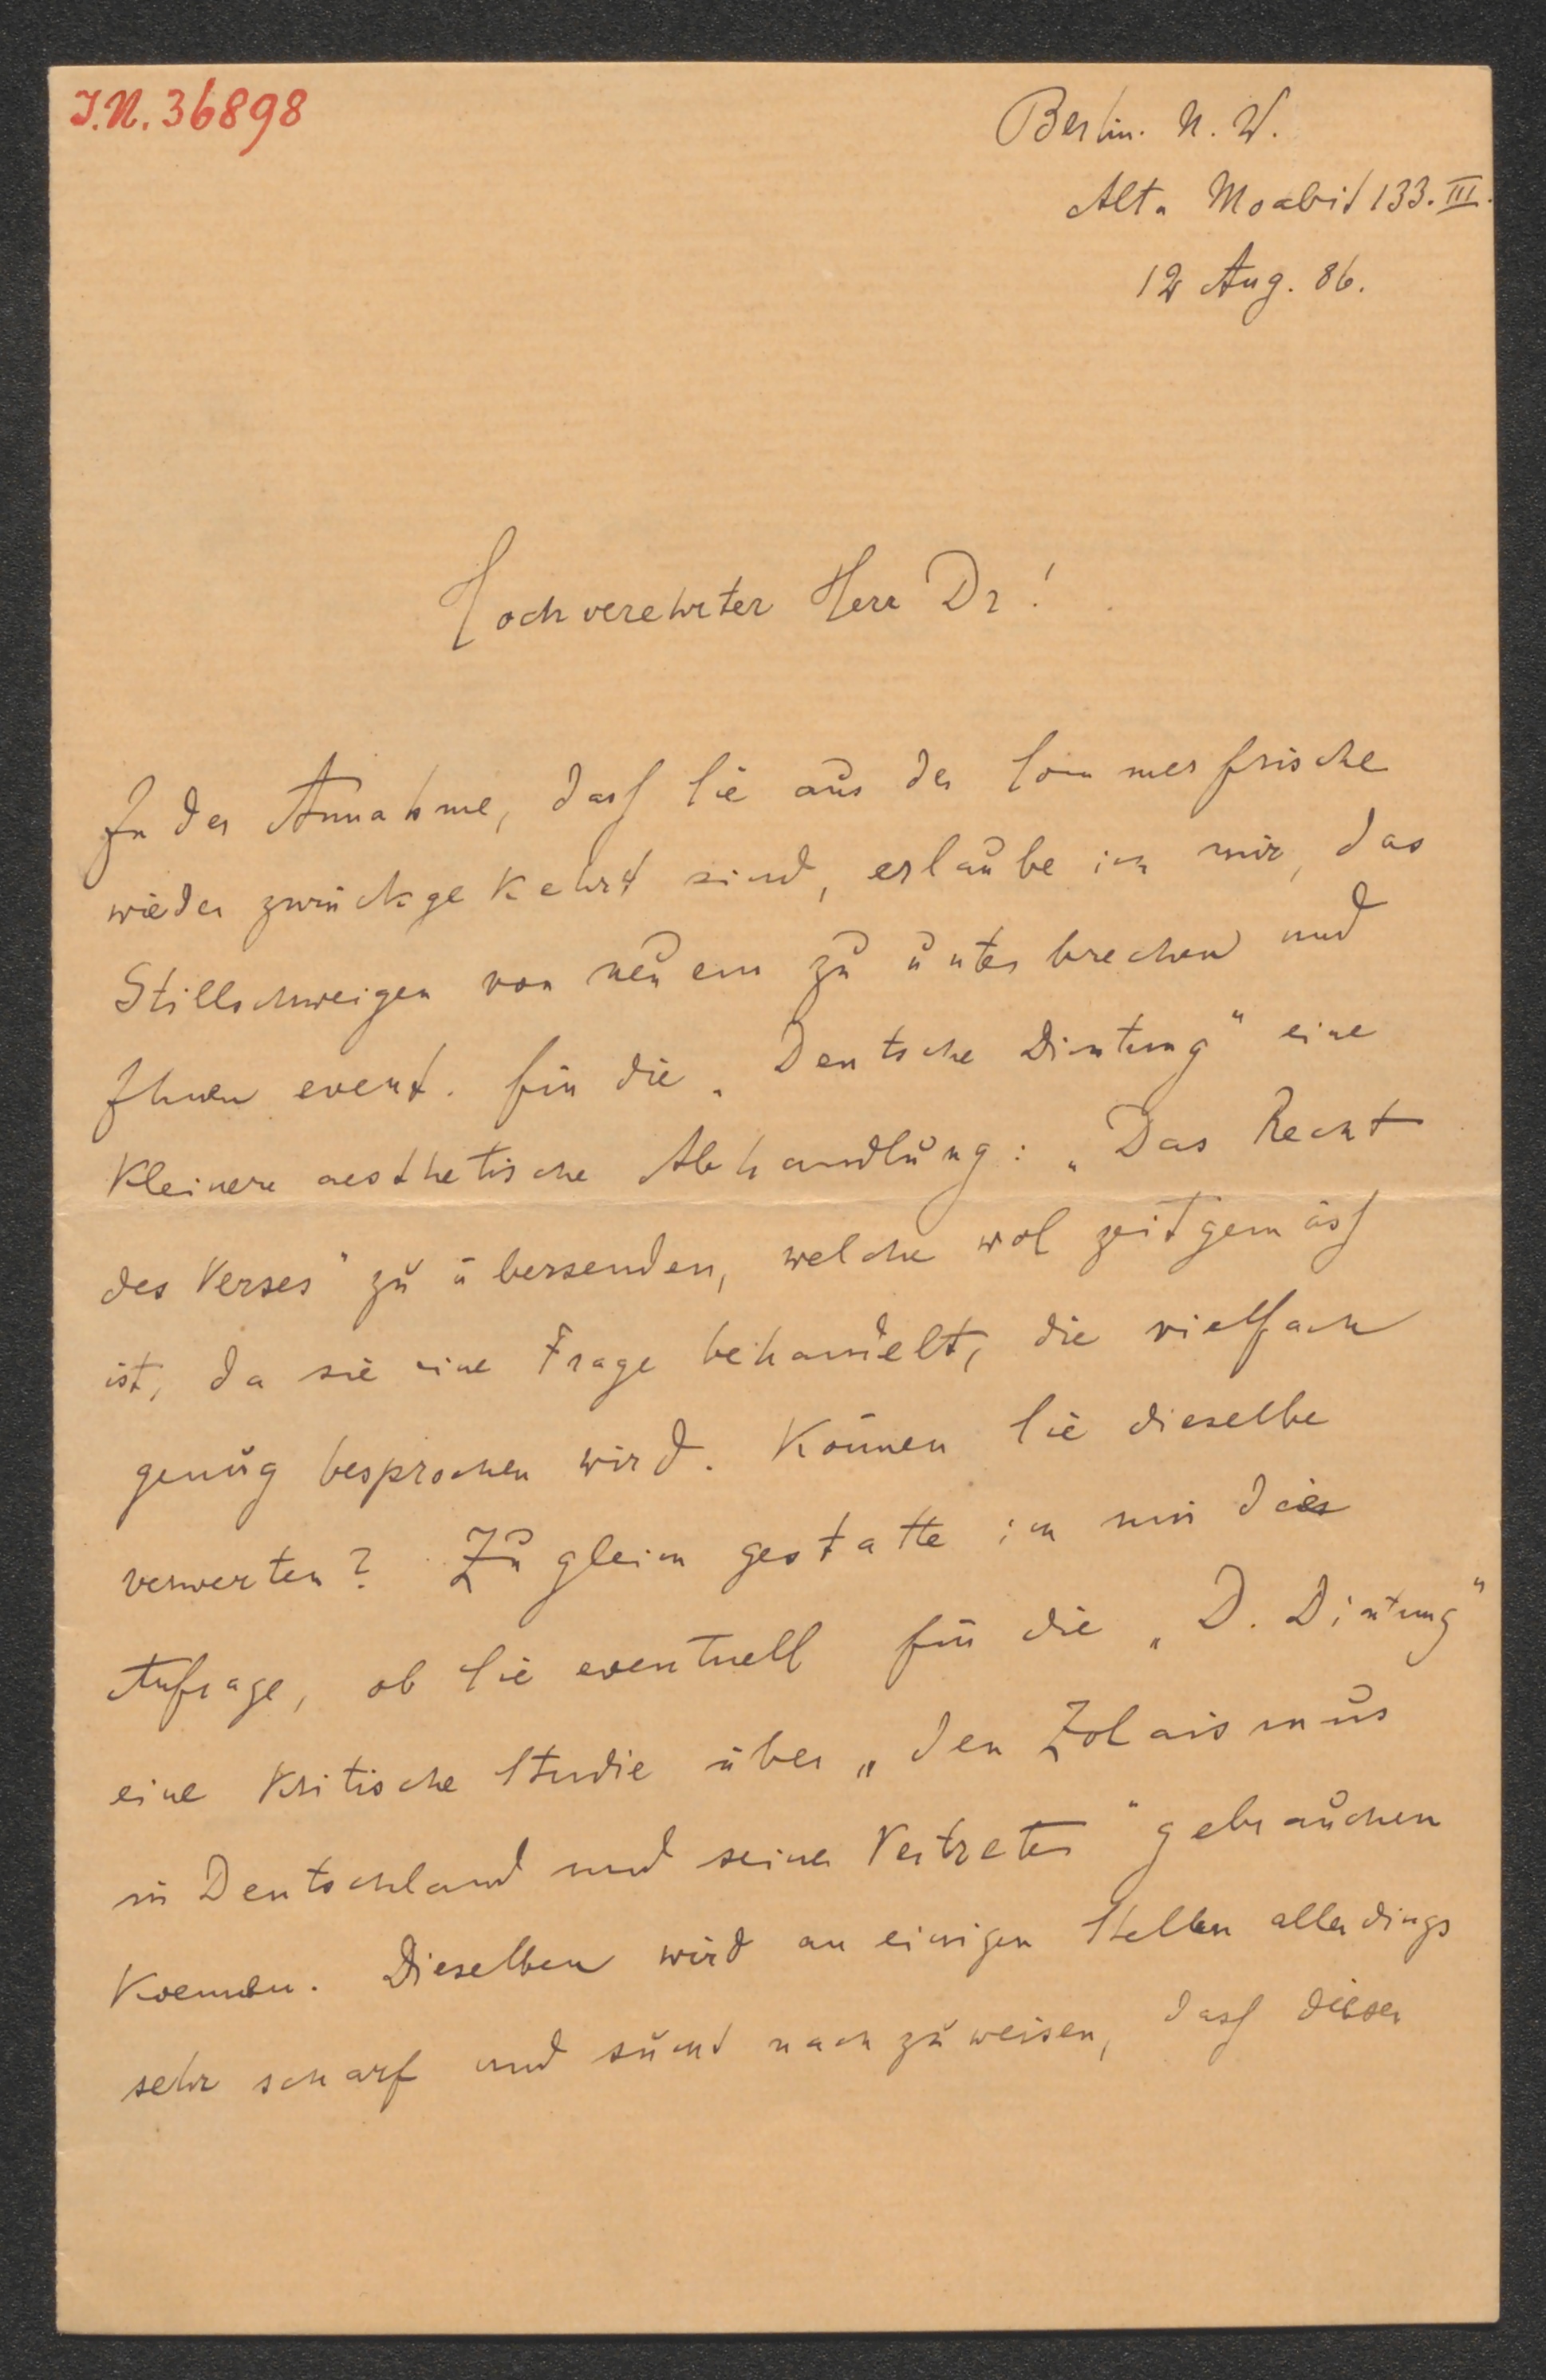 I.N. 36898
Berlin. N. W.
Alt. Moabit 133. III.
12 Aug. 86.
Hochverehrter Herr Dr!
In der Annahme, dass Sie aus der Sommerfrische
wieder zurückgekehrt sind, erlaube ich mir, das
Stillschweigen von neuem zu unterbrechen und
Ihnen event. für die „Deutsche Dichtung" eine
kleinere aesthetische Abhandlung: „Das Recht
des Verses" zu übersenden, welche wol zeitgemäss
ist, da sie eine Frage behandelt, die vielfach
genug besprochen wird. Können Sie dieselbe
verwerten? Zugleich gestatte ich mir die
Anfrage, ob Sie eventuell für die „D. Dichtung"
eine kritische Studie über „den Zolaismus
in Deutschland und seine Vertreter" gebrauchen
koennen. Dieselben wird an einigen Stellen allerdings
sehr scharf und sucht nachzuweisen, dass dieser